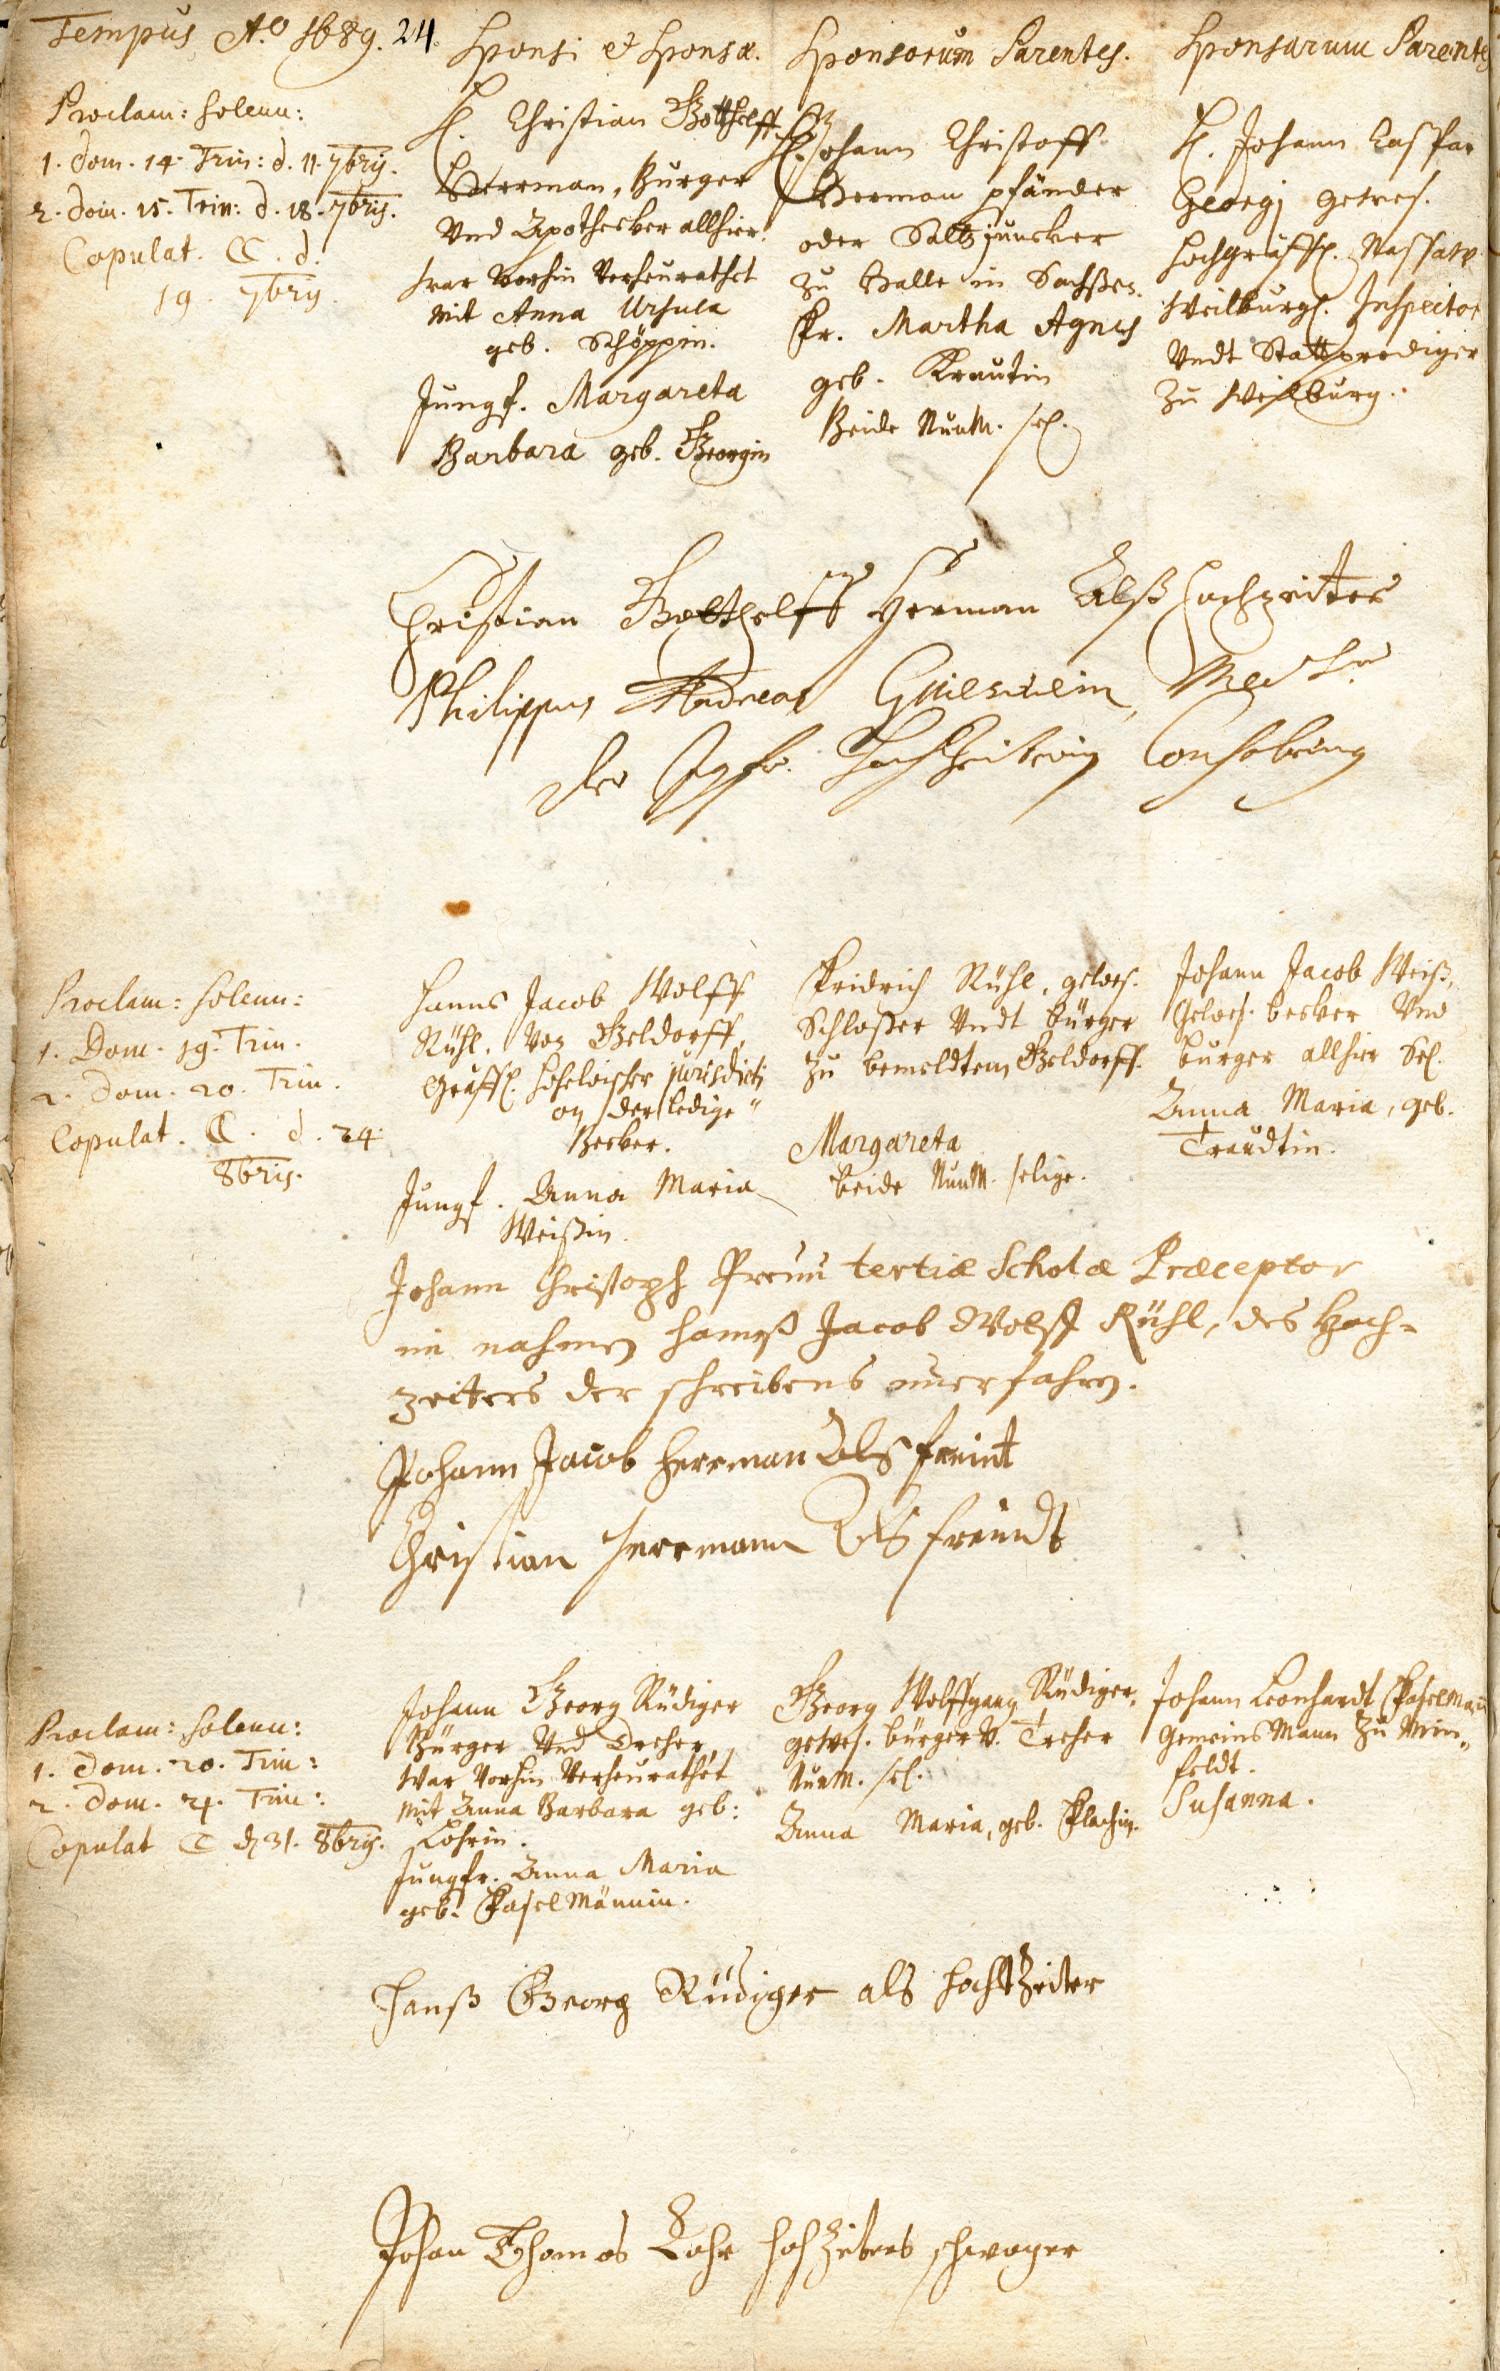 Tempus Aº 1689. 24.
Sponsi et Sponsæ.
Sponsorum Parentes.
Sponsarum Parentes
Proclam: solenn:
1. Dom. 14. Trin: d. 11. 7bris.
2. Dom. 15. Trin: d. 18. 7bris.
Copulat. ☾. d.
19. 7bris.
H. Christian Gotthelff
Herrman, Burger
Vnd Apothecker allhier.
war vorhin verheurathet
mit Anna Ursula
geb. Schöppin.
Jungf. Margareta
Barbara geb. Georgin
H. Johann Christoff
Herman pfänder
oder Saltzjuncker
zu Halle in Sachßen.
Fr. Martha Agnes
geb. Krautin
Beide NunM. sel.
H. Johann Caspar
Georgj gewes.
Hochgräffl. Nassaw
Weilburgl. Inspector
Vndt Stattprediger
zu Weilburg.
Christian Gotthelff Herman Alß Hochzeiter
Philippus Andreas
der Jgfr. Hochzeiterin Consobrinus
Proclam: solenn:
1. Dom. 19. Trin.
2. Dom. 20. Trin.
Copulat. ☾. d. 24.
8bris.
Hanns Jacob Wolff
Rühl, von Geldorff,
Gräffl. Hohelohischer jurisdicti
on der ledige
Becker.
Jungf. Anna Maria
Weißin.
Fridrich Rühl, gewes.
Schloßer Vndt bürger
zu bemeldtem Geldorff.
Margareta
beide NunM. selige.
Johann Jacob Weiß,
Gewes. becker Vnd
burger allhier Sel.
Anna Maria, geb.
Traudtin.
Johann Christoph Preuu tertiæ Scholæ Præceptor
im nahmen Hannß Jacob Wolff Rühl, des Hoch-
zeiters der schreibens unerfahren.
Johann Jacob Herrman Als freint
Christian Herrmann Als freundt
Proclam: solenn:
1. Dom. 20. Trin:
2. Dom. 21. Trin:
Copulat ☾ d. 31. 8bris.
Johann Georg Rüdiger
Bürger Vnd Dreher,
War Vorhin Verheurathet
mit Anna Barbara geb:
Lohrin.
Jungfr. Anna Maria
geb. Haselmännin.
Georg Wolffgang Rüdiger,
gewes. bürger V. Dreher
NunM. sel.
Anna Maria, geb. Flachin.
Johann Leonhardt Haselmann
Gemeins Mann zu Min„
feldt.
Susanna.
Hanß Georg Rüdiger als hochtzeiter
Johan Thomas Lohr hochzeiters schwager